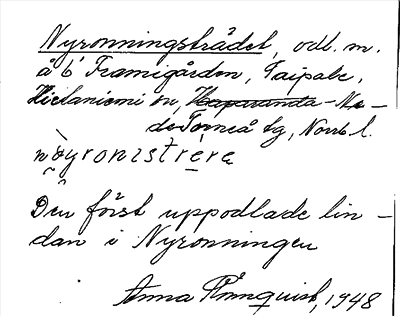 Nyronningstrådet, odl. m.
å 6' Framigården, Taipale,
Hietaniemi sn, Haparanda-Ne-
de Torneå tg, Norrb l.
Den först uppodlade lin-
dan i Nyronningen
Anna Rönnquist, 1948